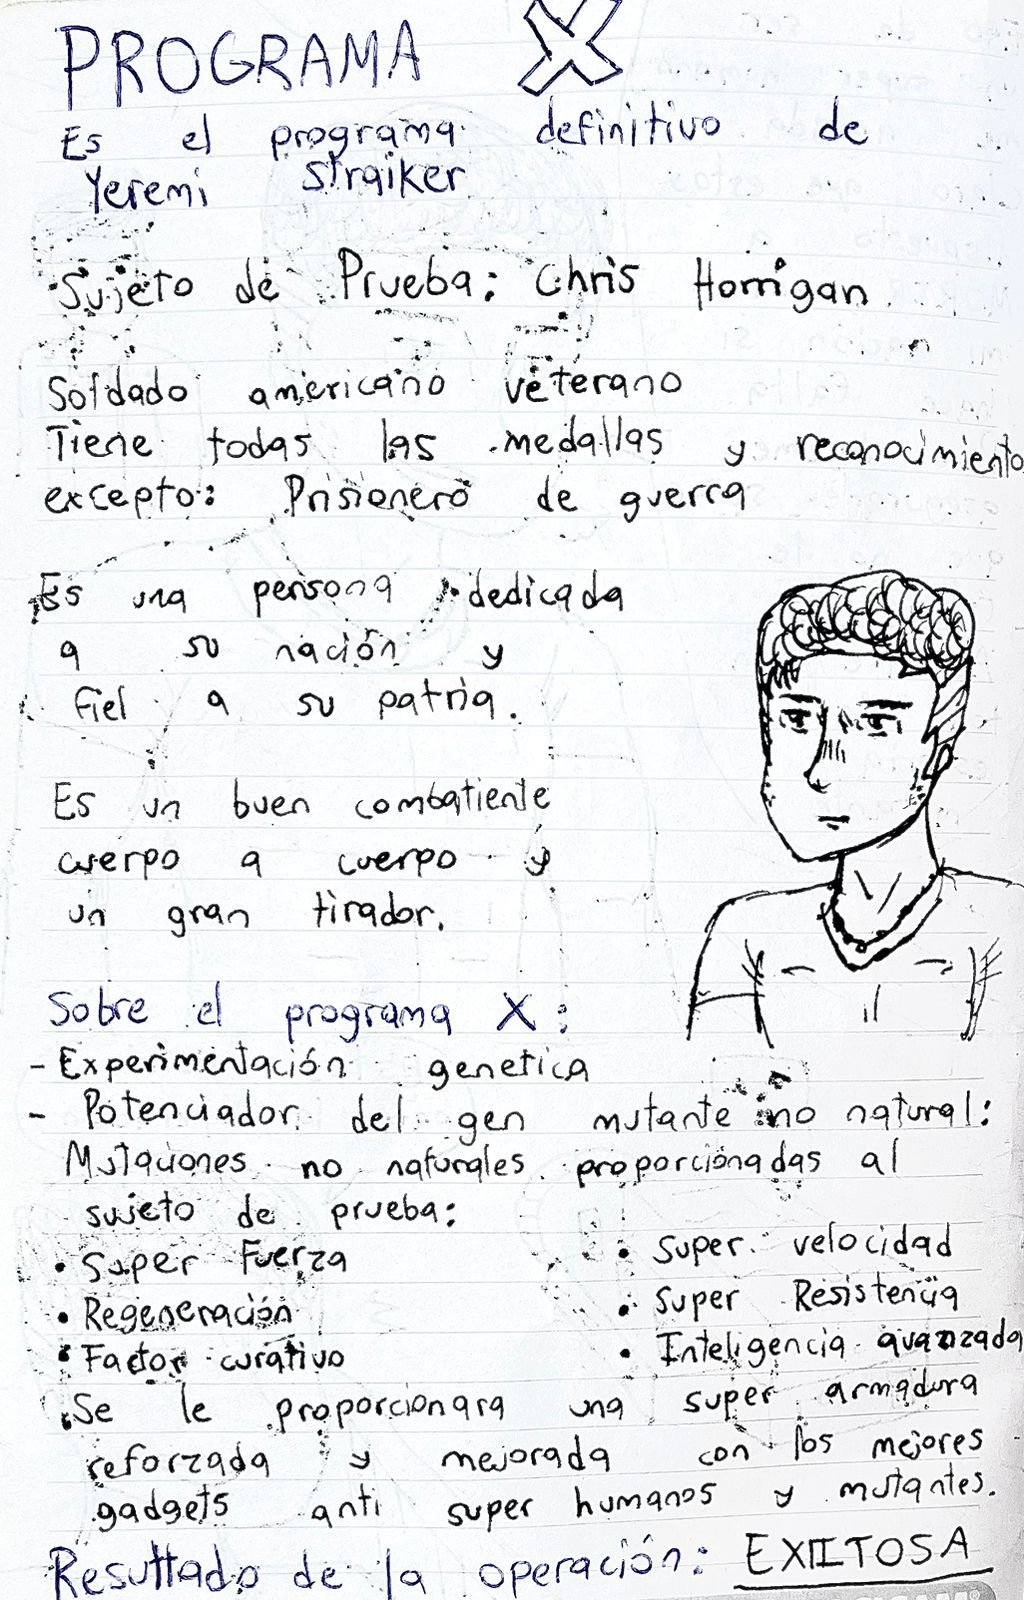 PROGRAMA X
Es el programa definitivo de
Yeremi Straiker
Sujeto de Prueba: Chris Horrigan
Soldado americano veterano
Tiene todas las medallas y reconocimiento
excepto: Prisionero de guerra
Es una persona dedicada
a su nación y
fiel a su patria.
Es un buen combatiente
cuerpo a cuerpo y
un gran tirador.
Sobre el programa X:
- Experimentación genetica
- Potenciador del gen mutante no natural:
Mutaciones no naturales proporcionadas al
sujeto de prueba:
• Super Fuerza • Super velocidad
• Regeneración • Super Resistencia
• Factor curativo • Inteligencia avanzada
• Se le proporcionara una super armadura
reforzada y mejorada con los mejores
gadgets anti super humanos y mutantes.
Resultado de la operación: EXITOSA